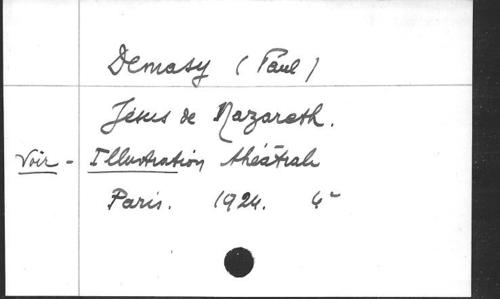 Demasy (Paul)
Jésus de Nazareth.
Voir - Illustration théâtrale
Paris. 1924. 4°